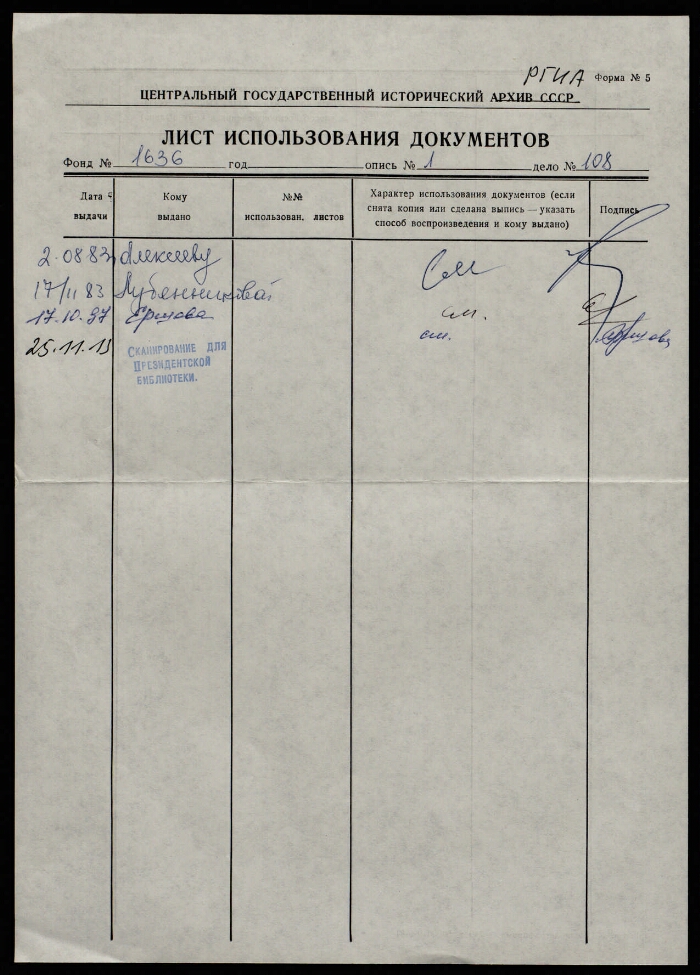 РГИА Форма № 5
ЦЕНТРАЛЬНЫЙ ГОСУДАРСТВЕННЫЙ ИСТОРИЧЕСКИЙ АРХИВ СССР
ЛИСТ ИСПОЛЬЗОВАНИЯ ДОКУМЕНТОВ
Фонд № 1636 год опись № 1 дело № 108
Дата выдачи
Кому выдано
№№ использован. листов
Характер использования документов (если
снята копия или сделана выпись — указать
способ воспроизведения и кому выдано)
Подпись
2.08 83 Алексееву См
17/11 83 см.
17.10.97 Ершова см. Ершова
25.11.13 СКАНИРОВАНИЕ ДЛЯ
ПРЕЗИДЕНТСКОЙ
БИБЛИОТЕКИ.